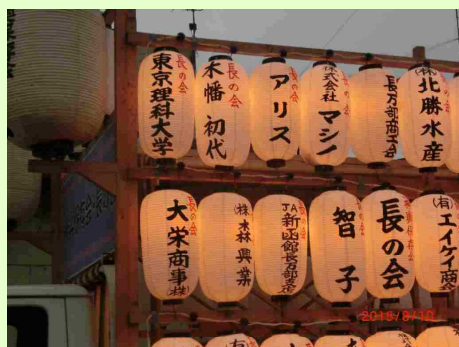 長の会
東京理科大学
長の会
木幡 初代
長の会
アリス
長の会
株式会社 マシノ
長万部商工会
(株)北勝水産
長の会
大栄商事(株)
(株)森興業
長の会
JA新函館長万部支店
長の会
智子
長の会
(有)エイケイ商会
2018/8/10